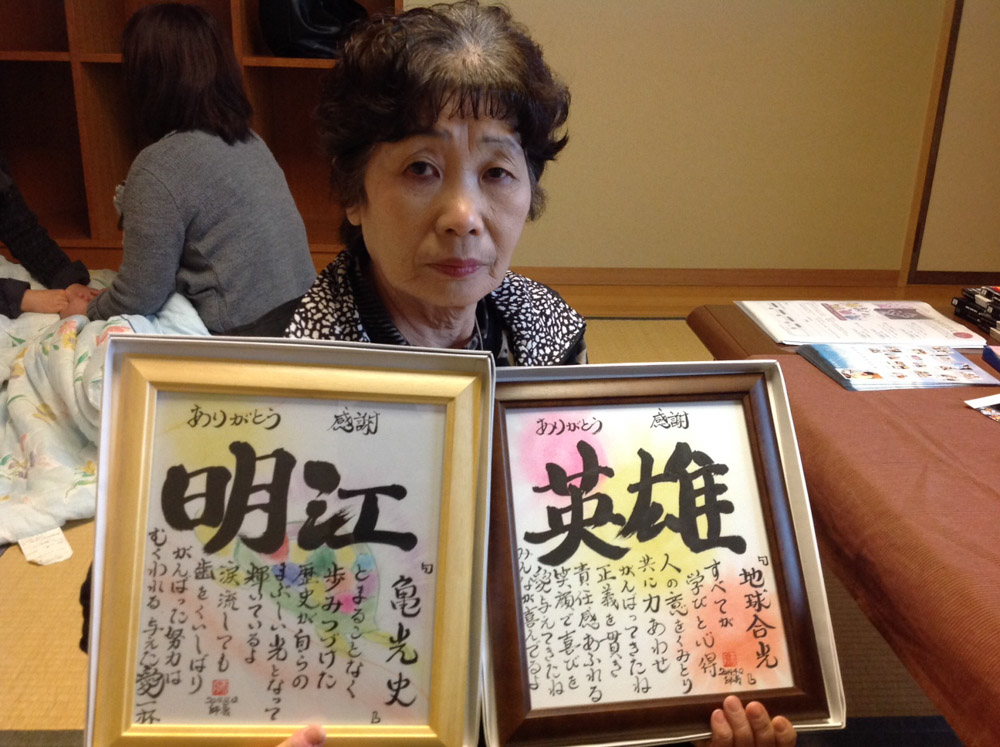 ありがとう 感謝
明江
亀光史
とまることなく
歩みつづけた
歴史が自らの
まぶしい光となって
輝っているよ
涙流しても
歯をくいしばり
がんばった努力は
むくわれる 与えん愛一杯
ありがとう 感謝
英雄
地球合光
すべてが
学びと心得
人の意をくみとり
共に力あわせ
がんばってきたね
正義を貫き
責任感あふれる
笑顔で喜びを
愛与えてきたね
みんなが喜んでるよ